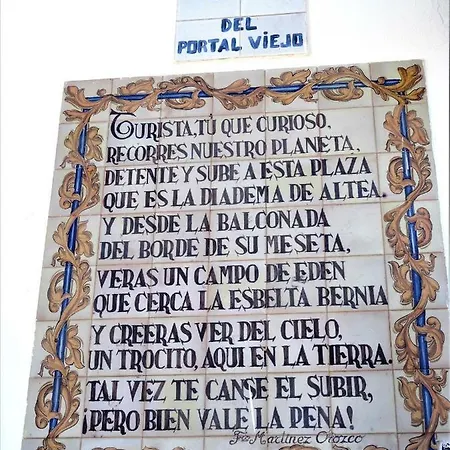 DEL
PORTAL VIEJO
TURISTA, TÚ QUE CURIOSO,
RECORRES NUESTRO PLANETA,
DETENTE Y SUBE A ESTA PLAZA
QUE ES LA DIADEMA DE ALTEA.
Y DESDE LA BALCONADA
DEL BORDE DE SU MESETA,
VERAS UN CAMPO DE EDEN
QUE CERCA LA ESBELTA BERNIA
Y CREERAS VER DEL CIELO,
UN TROCITO, AQUI EN LA TIERRA.
TAL VEZ TE CANSE EL SUBIR,
¡PERO BIEN VALE LA PENA!
Fco Martinez Orozco